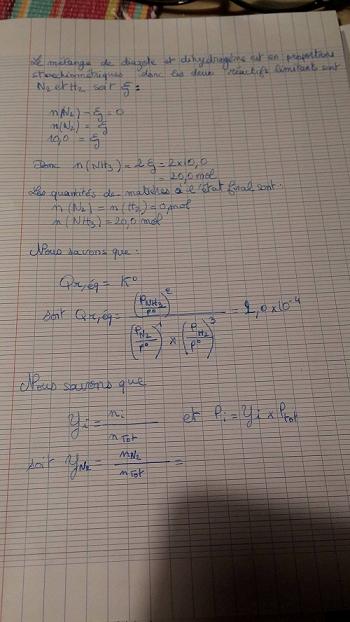 Le mélange de diazote et dihydrogène est en proportions
stoechiométriques donc les deux réactifs limitant sont
N₂ et H₂ soit ξ :
n(N₂) - ξ = 0
n(N₂) = ξ
10,0 = ξ
Donc n(NH₃) = 2ξ = 2×10,0
= 20,0 mol
Les quantités de matières à l'état final sont :
n(N₂) = n(H₂) = 0 mol
n(NH₃) = 20,0 mol
Nous savons que :
Qr,éq = K°
soit Qr,éq = (P_NH₃/P°)² / ((P_N₂/P°)¹ × (P_H₂/P°)³) = 2,0×10⁻⁴
Nous savons que
yᵢ = nᵢ/n_Tot et Pᵢ = yᵢ × P_tot
soit y_N₂ = n_N₂/n_Tot =